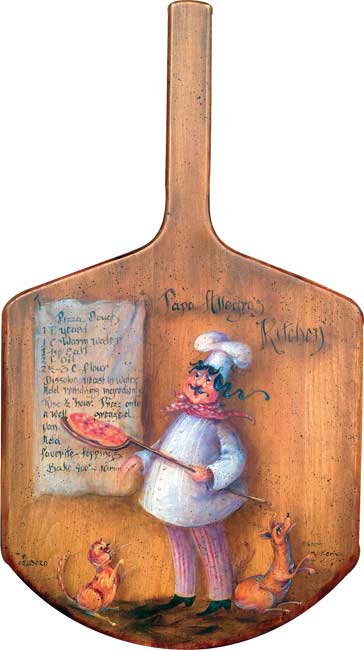 Papa Allegro's
Kitchen
Pizza Dough
1 T yeast
1 C Warm water
1 tsp Salt
2 T Oil
2½-3 C. Flour
Dissolve yeast in water
Add remaining ingredients
Rise ½ hour. Press onto
a well greased
pan
Add
favorite toppings
Bake 400°- 10 min